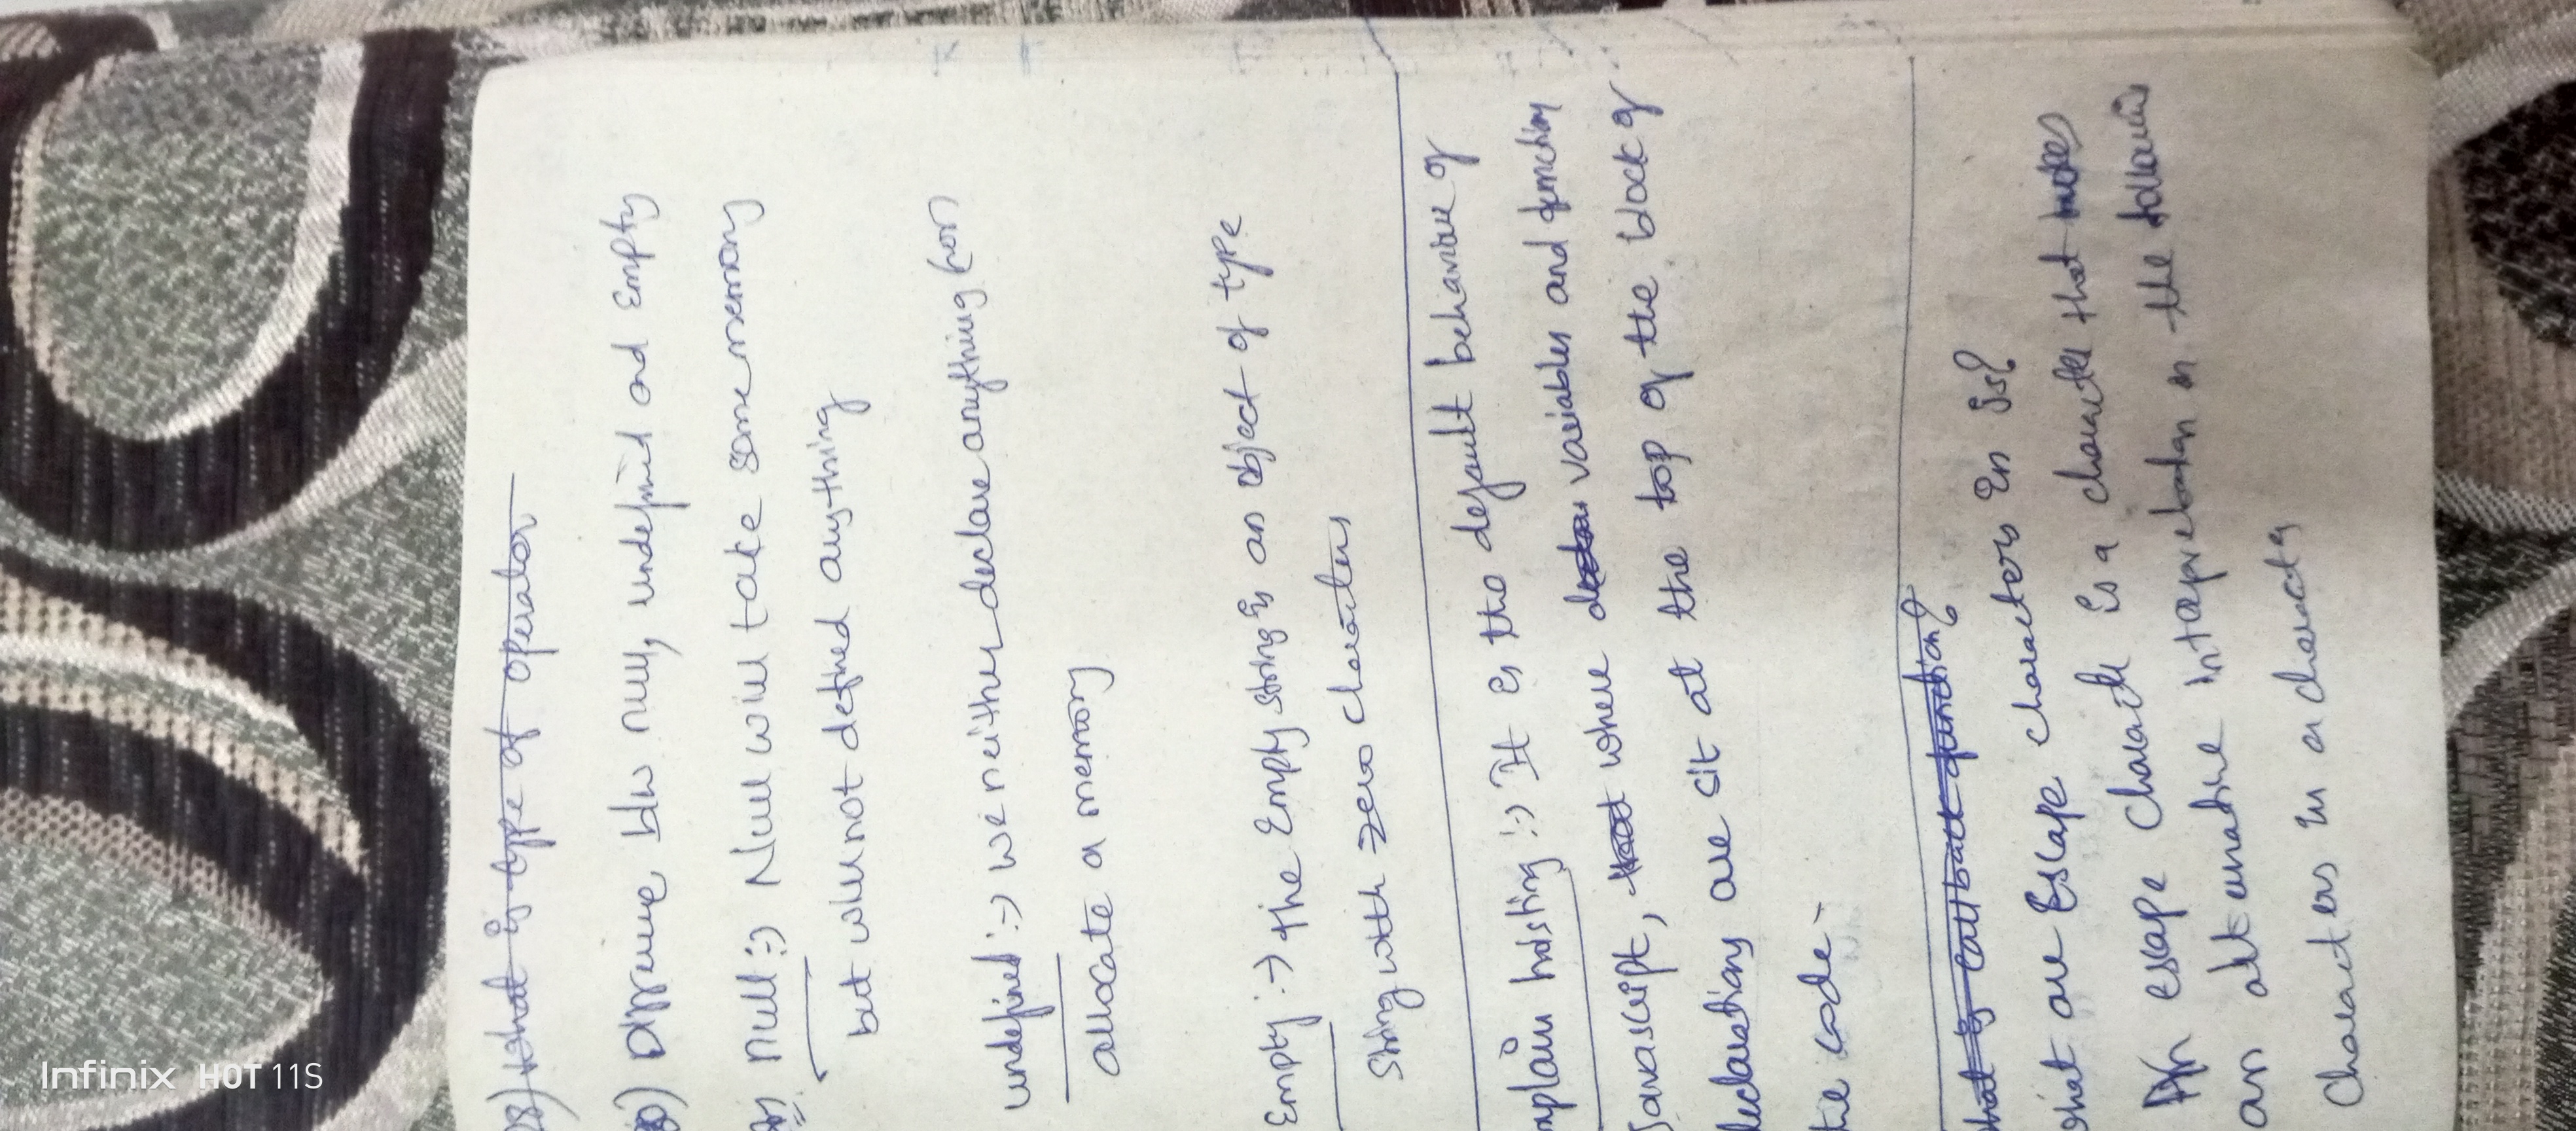 28) what is type of operator
30) Difference b/w null, undefined and Empty
As) null :-) Null will take some memory
but will not defined any-thing
undefined :-) we neither declare anything (or)
allocate a memory
Empty :-) the Empty string is an object of type
string with zero characters
mplain hoisting :-) It is the default behaviour of
Javascript, where variables and function
declarations are sit at the top of the block of
the code.
hat is call back function?
what are Escape characters in Js?
An escape character is a character that
an alternative interpretation on the following
characters in a character
Infinix HOT 11S